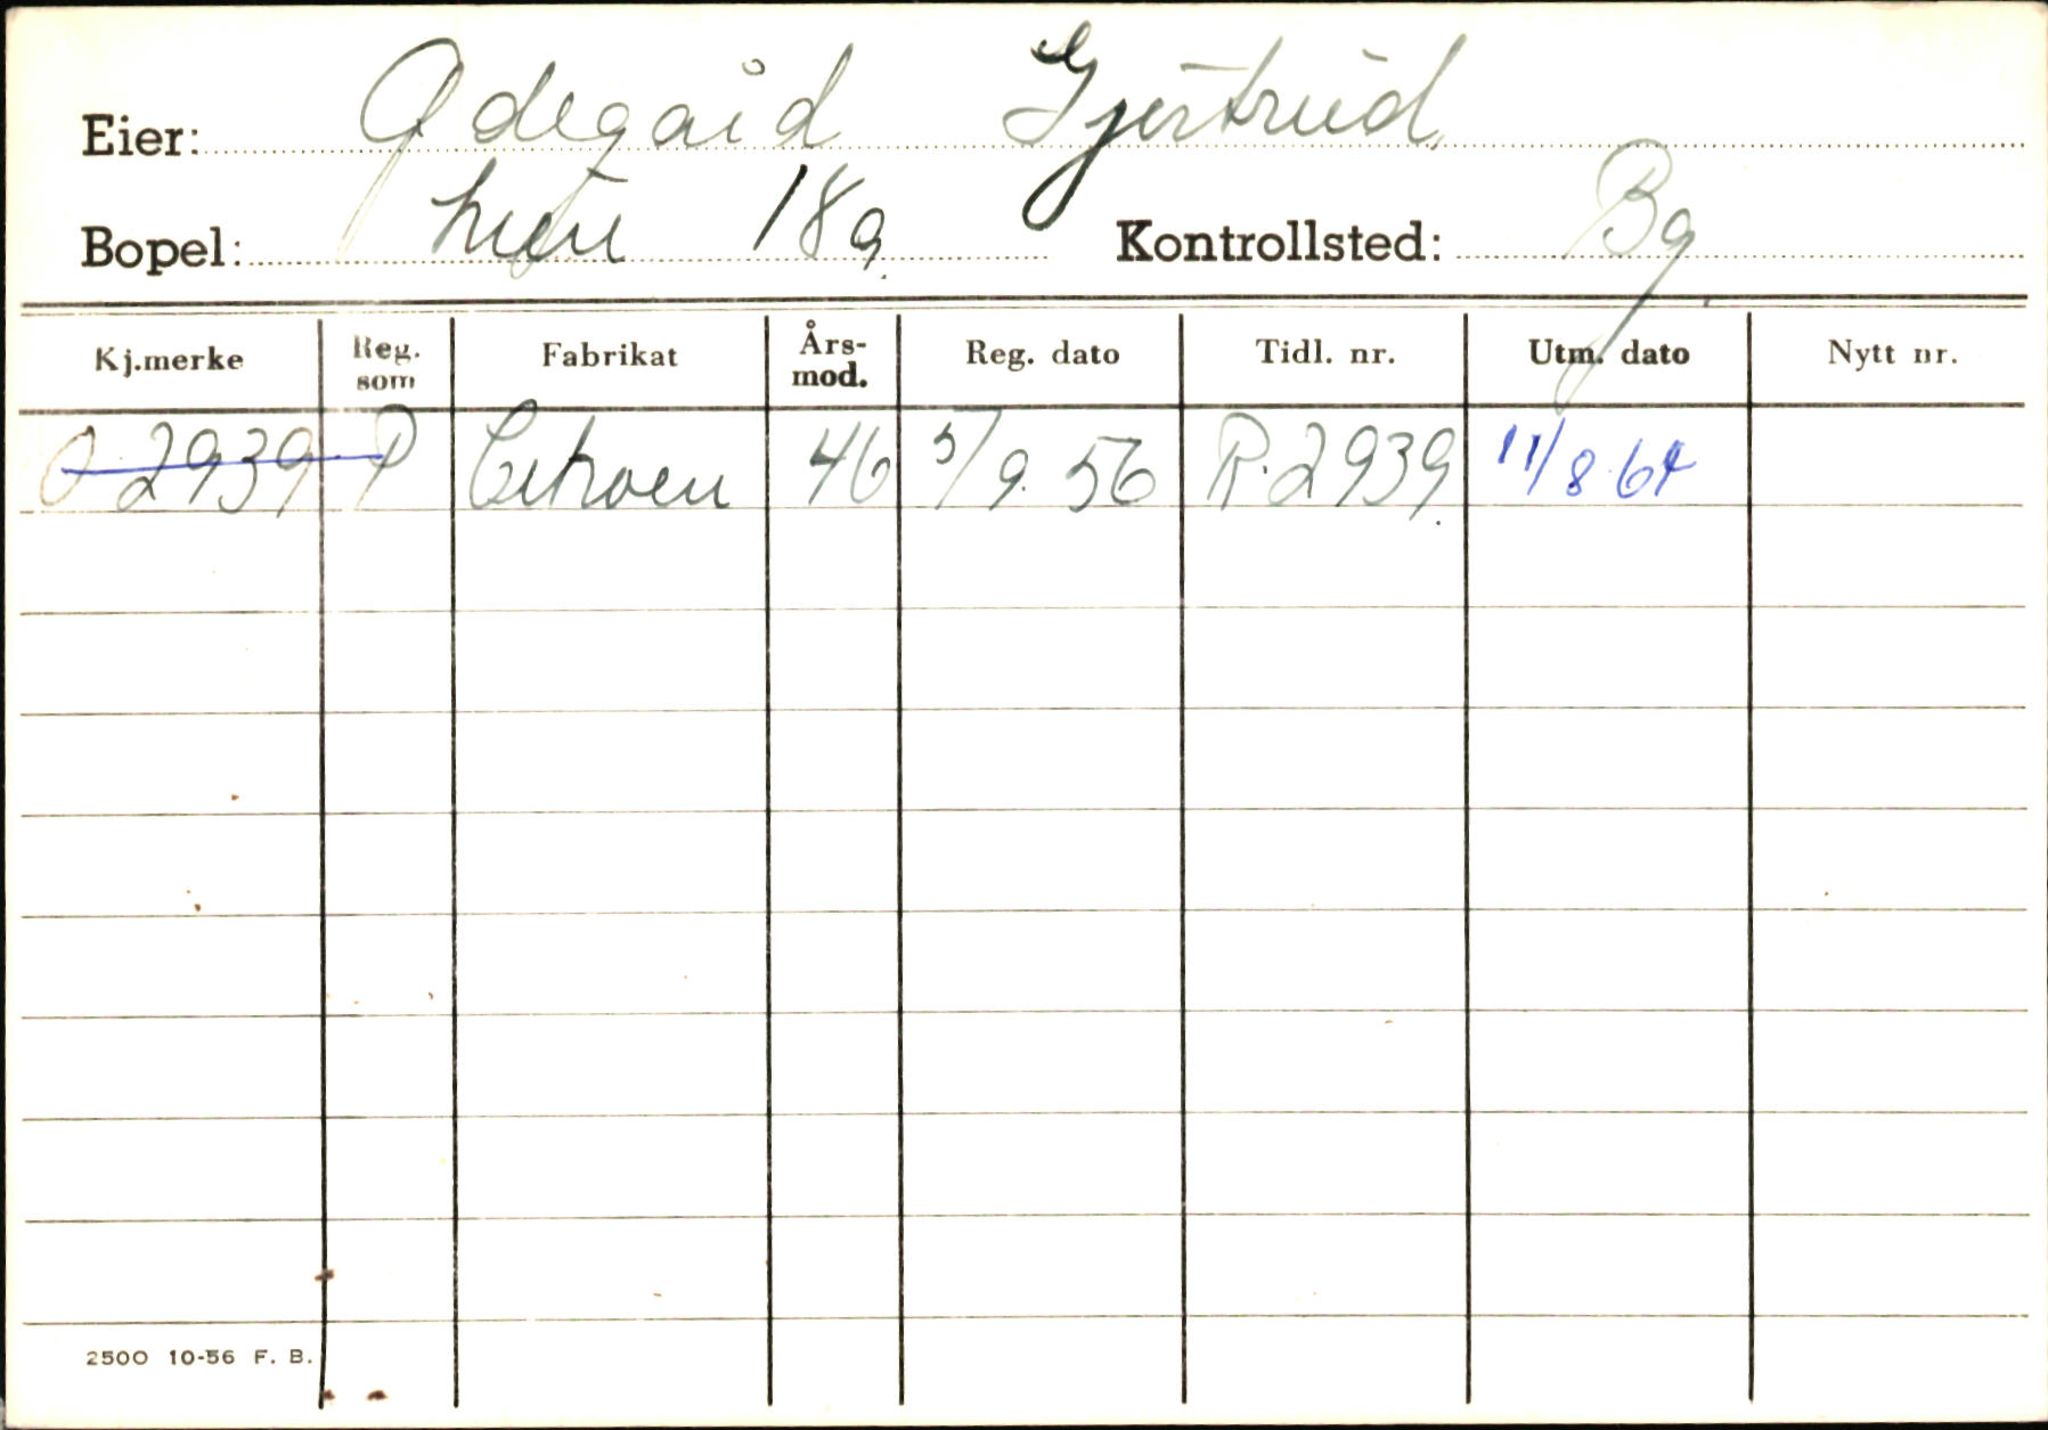 Eier: Ødegård Gjertrud
Bopel: 18a Kontrollsted: Bg.
Kj.merke Reg. som Fabrikat Års-mod. Reg. dato Tidl. nr. Utm. dato Nytt nr.
O-2939 P Citroen 46 5/9.56 R-2939. 11/8 64
2500 10-56 F. B.